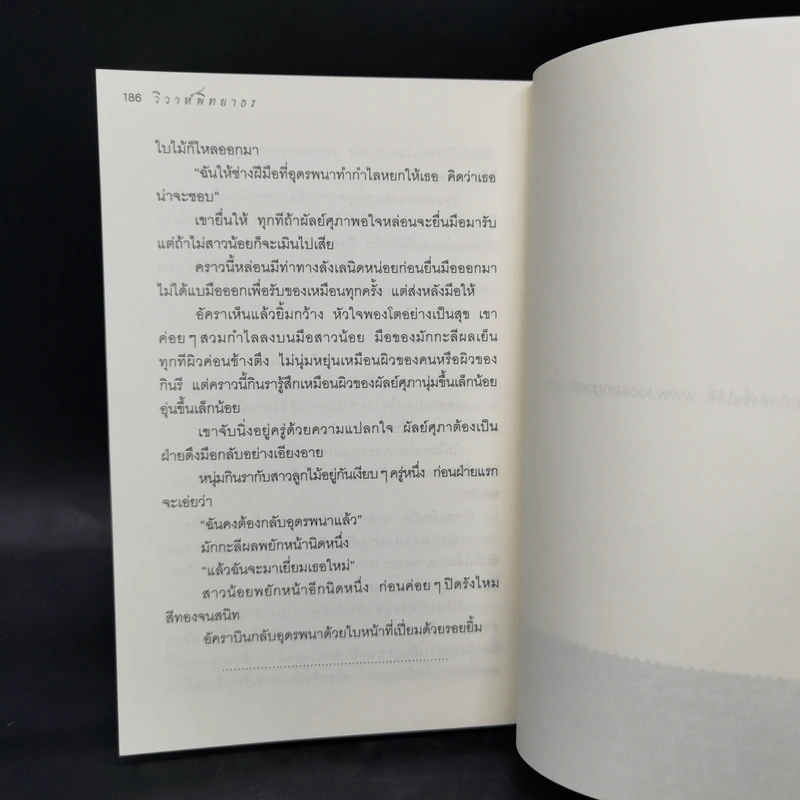 186 วิวาห์พิทยาธร
ใบไม้ก็ไหลออกมา
"ฉันให้ช่างฝีมือที่อุดรพนาทำกำไลหยกให้เธอ คิดว่าเธอ
น่าจะชอบ"
เขายื่นให้ ทุกทีถ้าผัลย์ศุภาพอใจหล่อนจะยื่นมือมารับ
แต่ถ้าไม่สาวน้อยก็จะเมินไปเสีย
คราวนี้หล่อนมีท่าทางลังเลนิดหน่อยก่อนยื่นมือออกมา
ไม่ได้แบมือออกเพื่อรับของเหมือนทุกครั้ง แต่ส่งหลังมือให้
อัคราเห็นแล้วยิ้มกว้าง หัวใจพองโตอย่างเป็นสุข เขา
ค่อยๆ สวมกำไลลงบนมือสาวน้อย มือของมักกะลีผลเย็น
ทุกทีผิวค่อนข้างตึง ไม่นุ่มหยุ่นเหมือนผิวของคนหรือผิวของ
กินรี แต่คราวนี้กินรารู้สึกเหมือนผิวของผัลย์ศุภานุ่มขึ้นเล็กน้อย
อุ่นขึ้นเล็กน้อย
เขาจับนิ่งอยู่ครู่ด้วยความแปลกใจ ผัลย์ศุภาต้องเป็น
ฝ่ายดึงมือกลับอย่างเอียงอาย
หนุ่มกินรากับสาวลูกไม้อยู่กันเงียบๆ ครู่หนึ่ง ก่อนฝ่ายแรก
จะเอ่ยว่า
"ฉันคงต้องกลับอุดรพนาแล้ว"
มักกะลีผลพยักหน้านิดหนึ่ง
"แล้วฉันจะมาเยี่ยมเธอใหม่"
สาวน้อยพยักหน้าอีกนิดหนึ่ง ก่อนค่อยๆ ปิดรังไหม
สีทองจนสนิท
อัคราบินกลับอุดรพนาด้วยใบหน้าที่เปี่ยมด้วยรอยยิ้ม